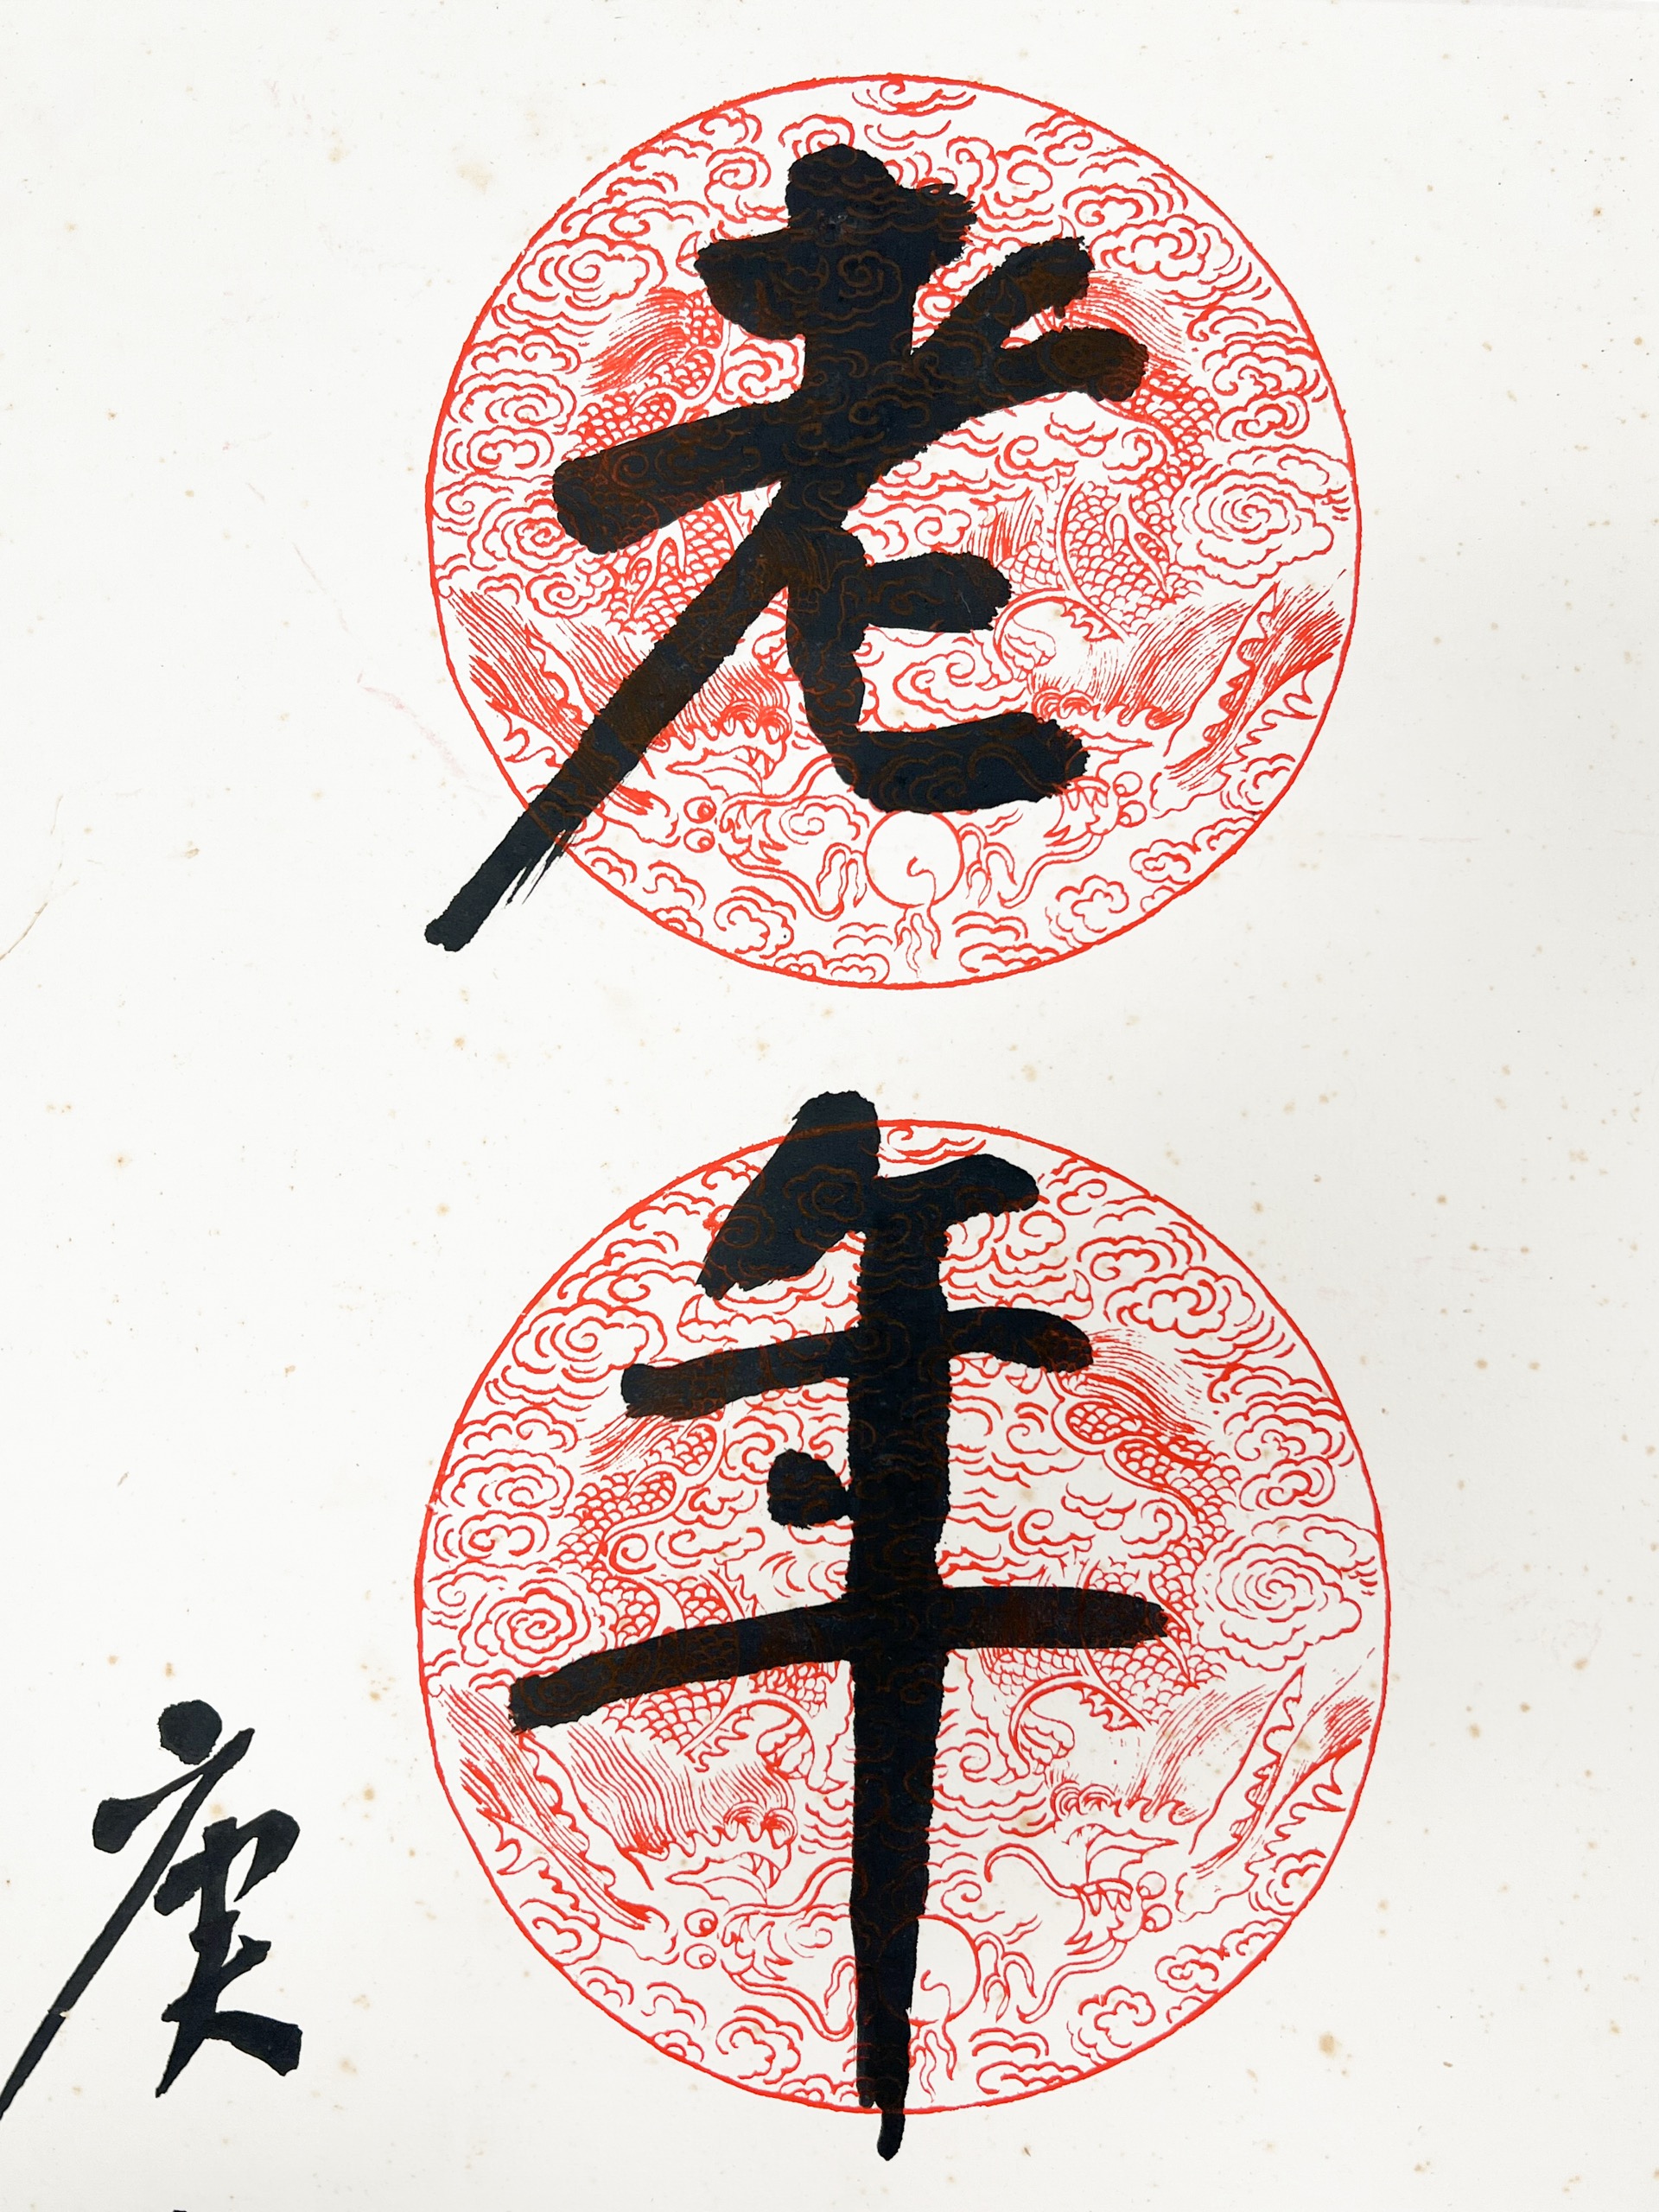 老年
庚